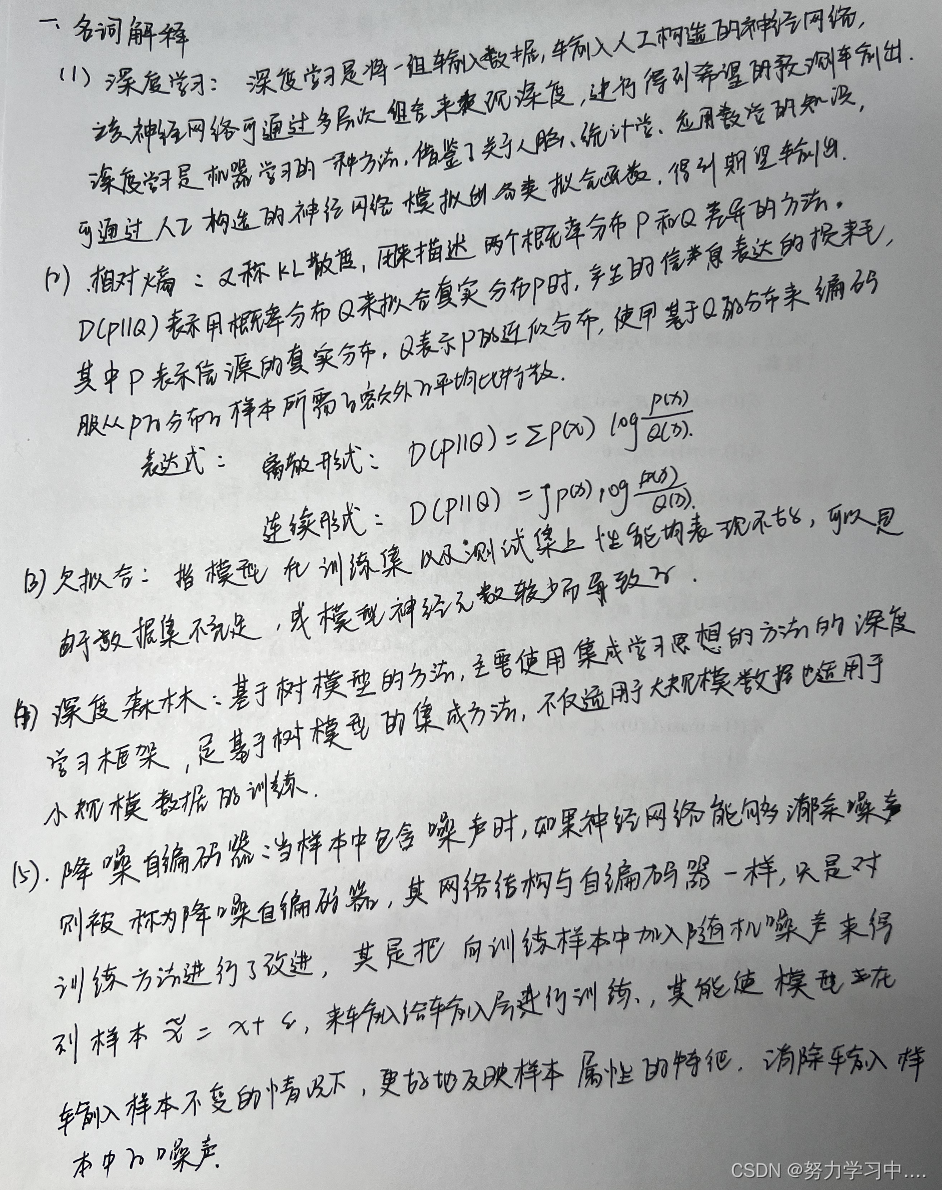 一、名词解释
(1) 深度学习：深度学习是将一组输入数据，输入人工构造的神经网络，
该神经网络可通过多层次组合来表现深度，进行得到希望的预测输出.
深度学习是机器学习的一种方法，借鉴了关于人脑、统计学、应用数学的知识，
可通过人工构造的神经网络模拟出各类拟合函数，得到期望输出.
(2) 相对熵：又称KL散度，用来描述两个概率分布P和Q差异的方法。
D(P||Q)表示用概率分布Q来拟合真实分布P时，产生的信息表达的损耗，
其中P表示信源的真实分布，Q表示P的近似分布，使用基于Q的分布来编码
服从P的分布的样本所需的额外的平均比特数.
表达式：离散形式：D(P||Q) = ΣP(x) log P(x)/Q(x).
连续形式：D(P||Q) = ∫P(x) log P(x)/Q(x).
(3) 欠拟合：指模型在训练集以及测试集上性能均表现不好，可以是
由于数据集不充足，或模型神经元数较少而导致的.
(4) 深度森林：基于树模型的方法，主要使用集成学习思想的方法的深度
学习框架，是基于树模型的集成方法，不仅适用于大规模数据也适用于
小规模数据的训练.
(5). 降噪自编码器：当样本中包含噪声时，如果神经网络能够消除噪声
则被称为降噪自编码器，其网络结构与自编码器一样，只是对
训练方法进行了改进，其是把向训练样本中加入随机噪声来得
到样本 x̃ = x+ε，来输入给输入层进行训练，其能使模型在
输入样本不变的情况下，更好地反映样本属性的特征.消除输入样
本中的噪声.
CSDN @努力学习中....